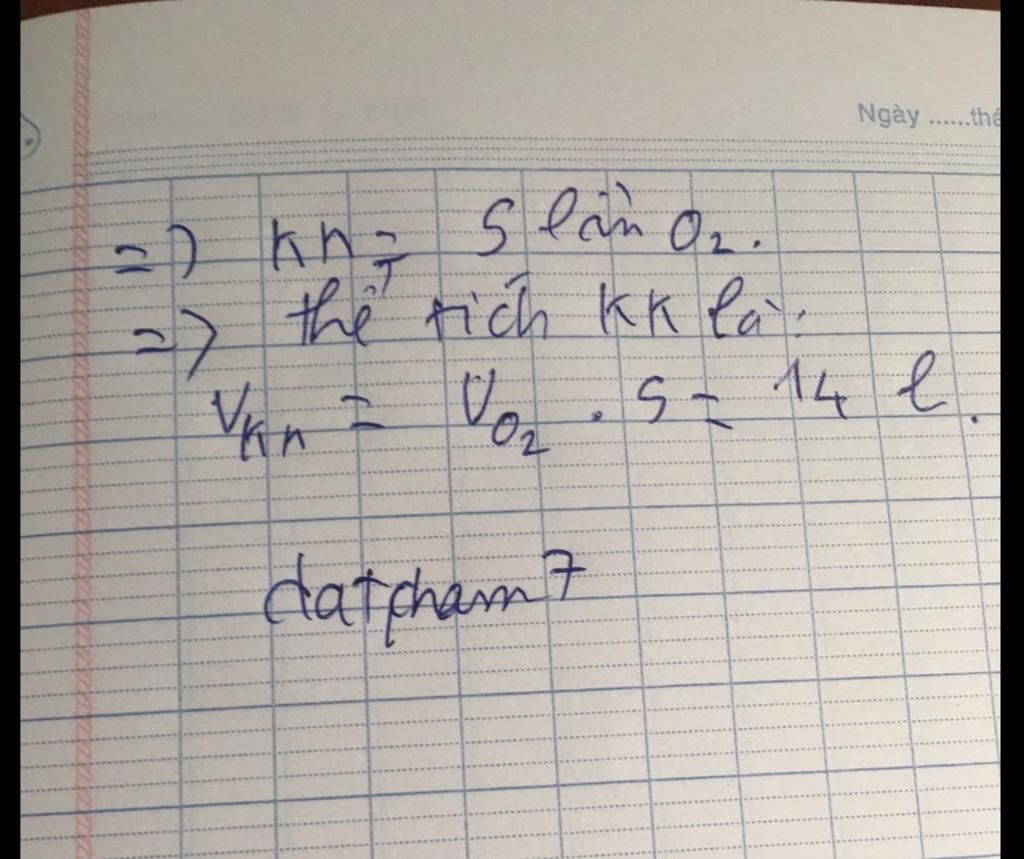 Ngày ......thá
=> KK = 5 lần O₂.
=> thể tích KK là:
V_KK = V_O₂ . 5 = 14 l.
datpham7